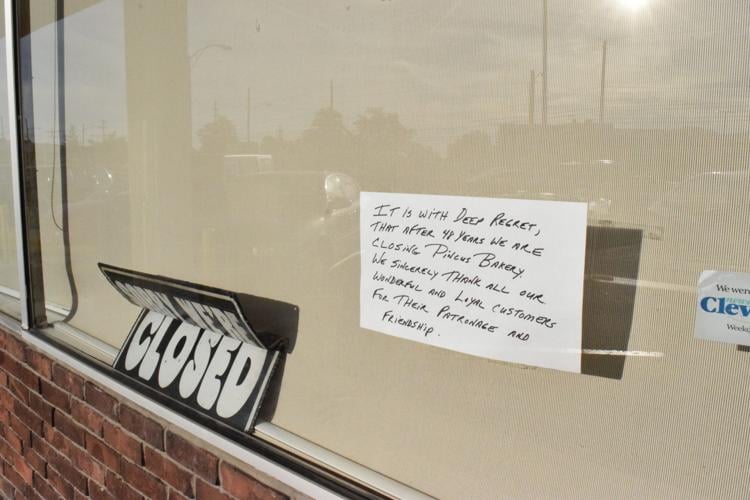 IT IS WITH DEEP REGRET,
THAT AFTER 48 YEARS WE ARE
CLOSING PINCUS BAKERY
WE SINCERELY THANK ALL OUR
WONDERFUL AND LOYAL CUSTOMERS
FOR THEIR PATRONAGE AND
FRIENDSHIP.
SORRY WE'RE
CLOSED
We were
Clev
Weeks